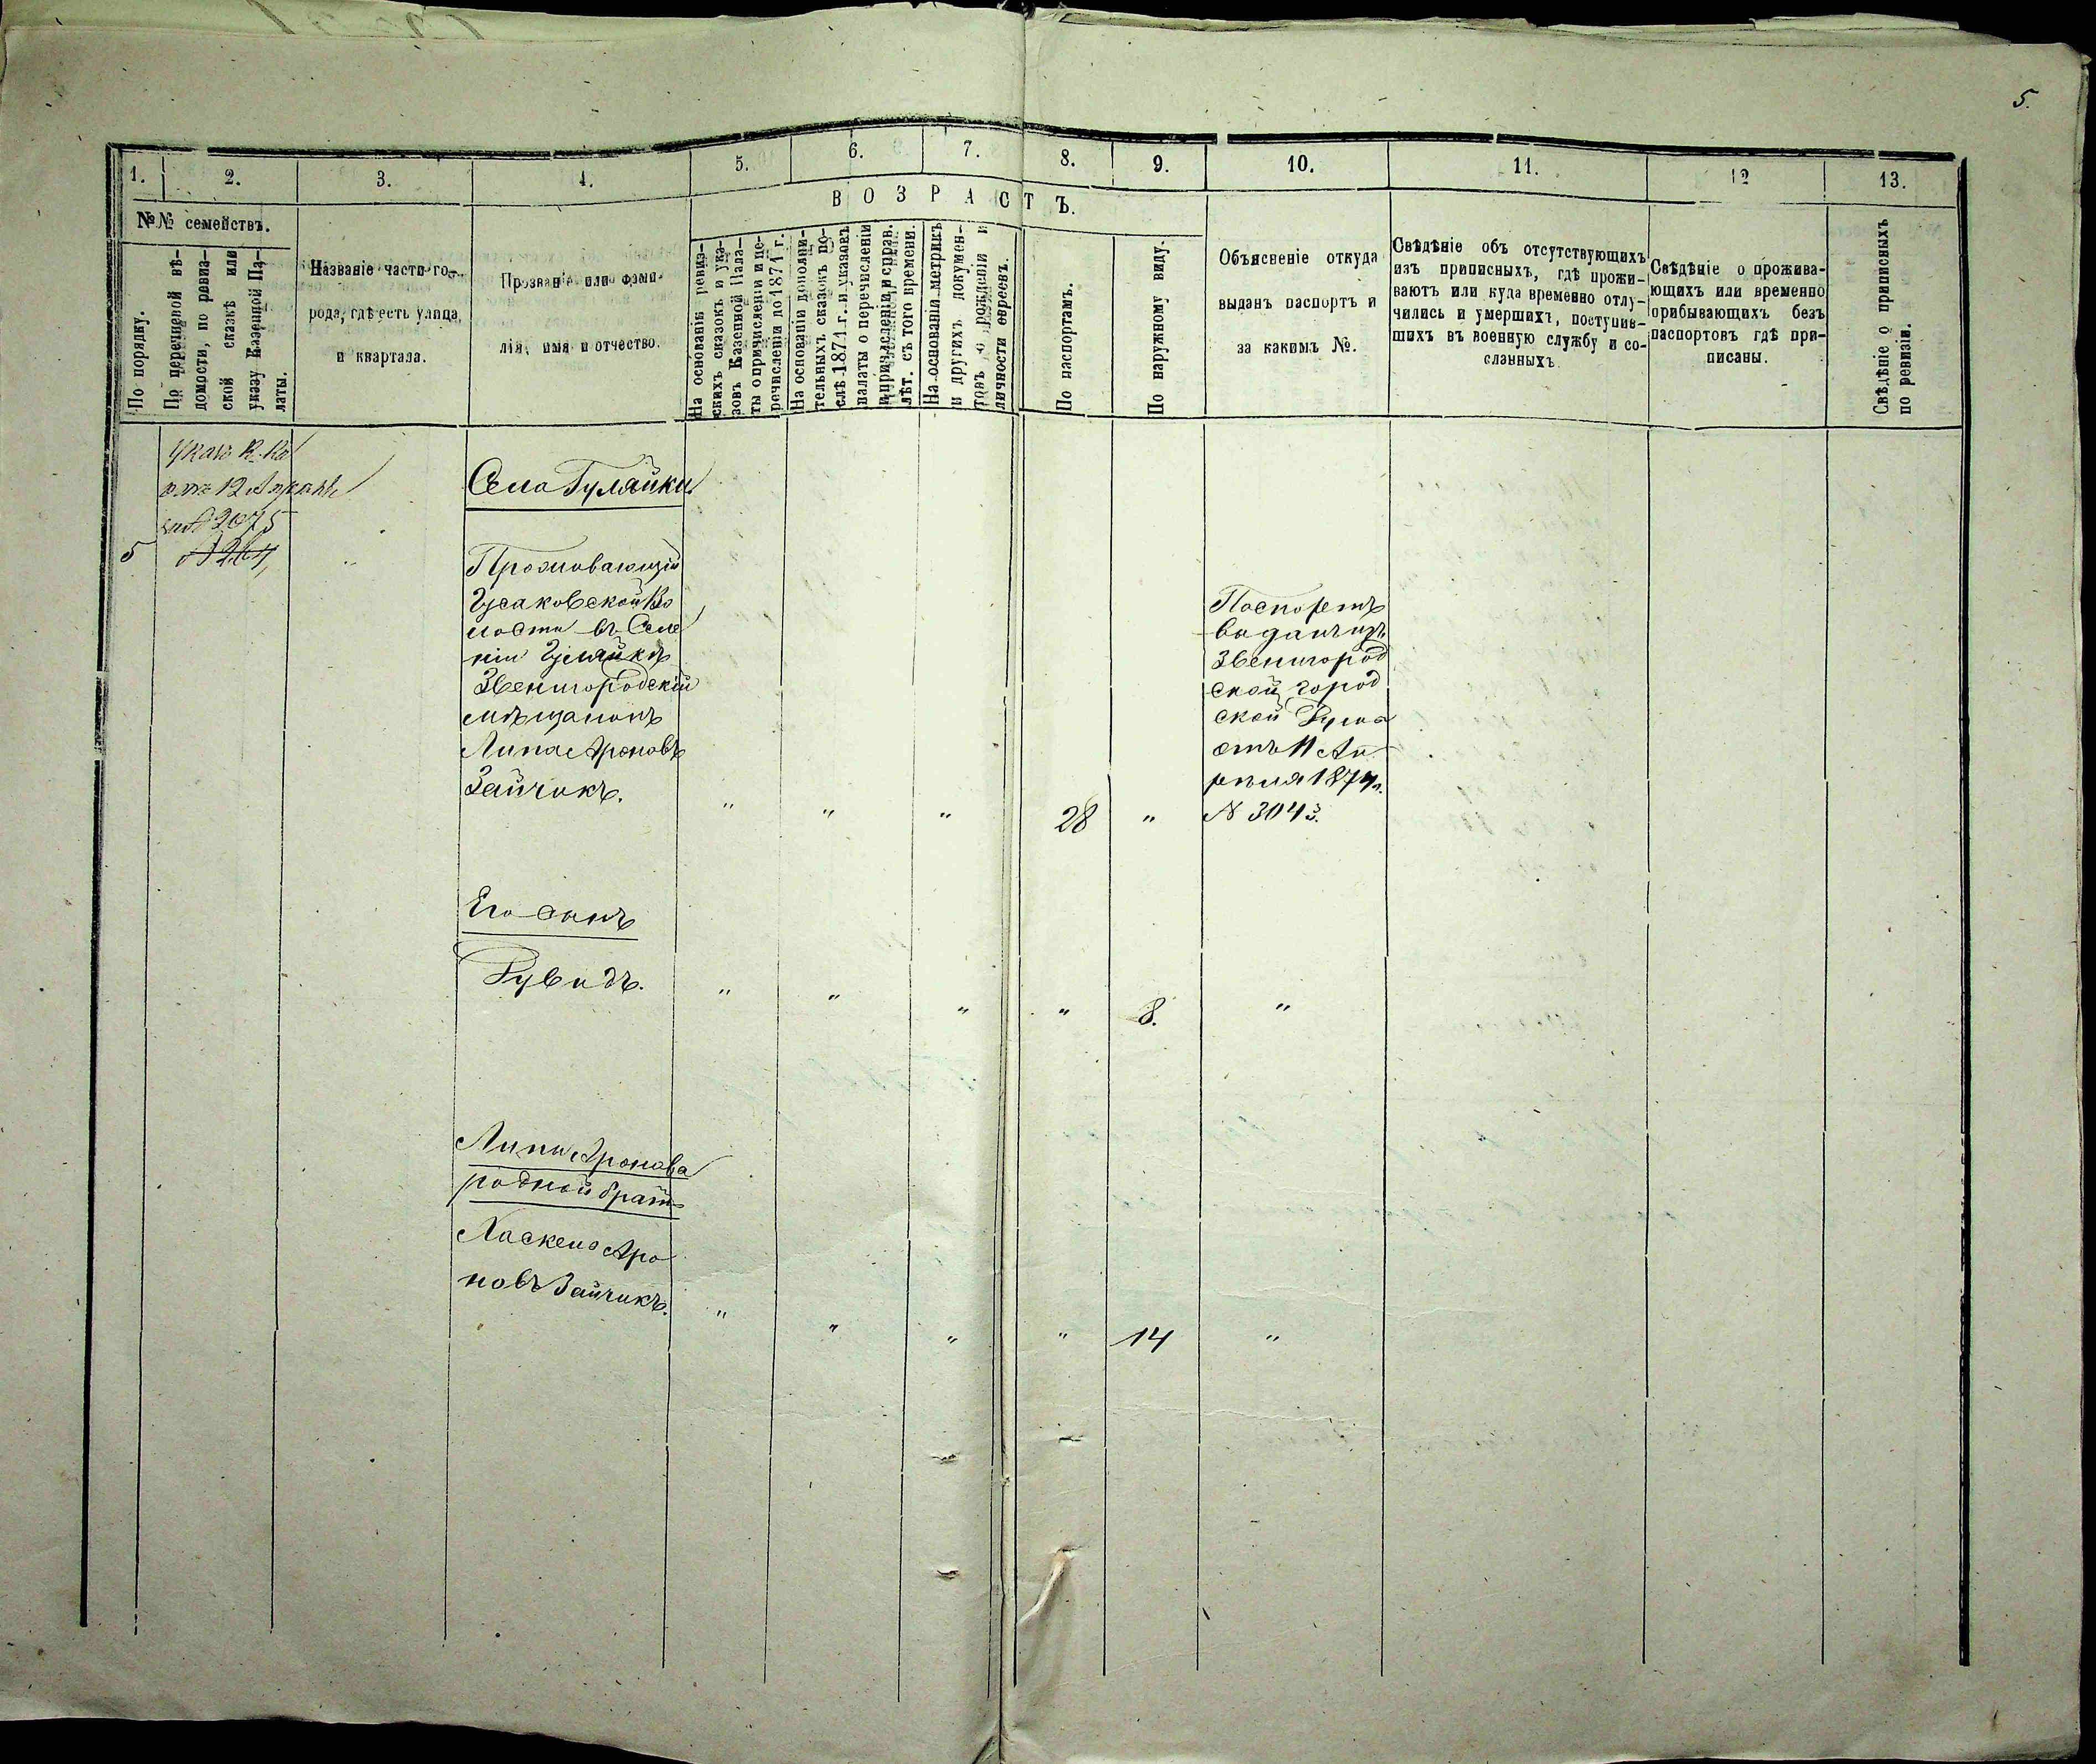 5.
1.
2.
3.
4.
5.
6.
7.
8.
9.
10.
11.
12
13.
№№ семействъ.
ВОЗРАСТЪ.
По порядку.
По перечневой вѣ-
домости, по ревиз-
ской сказкѣ или
указу Казенной Па-
латы.
Названіе части го-
рода, гдѣ есть улица,
и квартала.
Прозваніе или фами-
лія, имя и отчество.
На основаніи ревиз-
скихъ сказокъ и ука-
зовъ Казенной Пала-
ты о причисленіи и пе-
речисленіи до 1871 г.
На основаніи дополни-
тельныхъ сказокъ по-
слѣ 1871 г. и указовъ
палаты о перечисленіи
и причисленіи и справ.
лѣт. съ того времени.
На основаніи метрикъ
и другихъ докумен-
товъ о рожденіи и
личности евреевъ.
По паспортамъ.
По наружному виду.
Объясненіе откуда
выданъ паспортъ и
за какимъ №.
Свѣдѣніе объ отсутствующихъ
изъ приписныхъ, гдѣ прожи-
ваютъ или куда временно отлу-
чились и умершихъ, поступив-
шихъ въ военную службу и со-
сланныхъ
Свѣдѣніе о прожива-
ющихъ или временно
прибывающихъ безъ
паспортовъ гдѣ при-
писаны.
Свѣдѣніе о приписныхъ
по ревизіи.
отъ 12 Апрѣля
№ 2075
5
Села Гуляйки
Проживающій
Гусаковской Во
лости въ Селе
ніи Гуляйкѣ
Звенигородскій
мѣщанинъ
Липа Ароновъ
Зайчикъ. " " " 28 "
Паспортъ
выданъ изъ
Звенигород
ской город
ской Думы
отъ 11 Ап
рѣля 1874 г.
N 3043.
Его сынъ
Рувидъ. " " " " 8. "
Липы Аронова
родной братъ
Аро
новъ Зайчикъ. " " " " 14 "